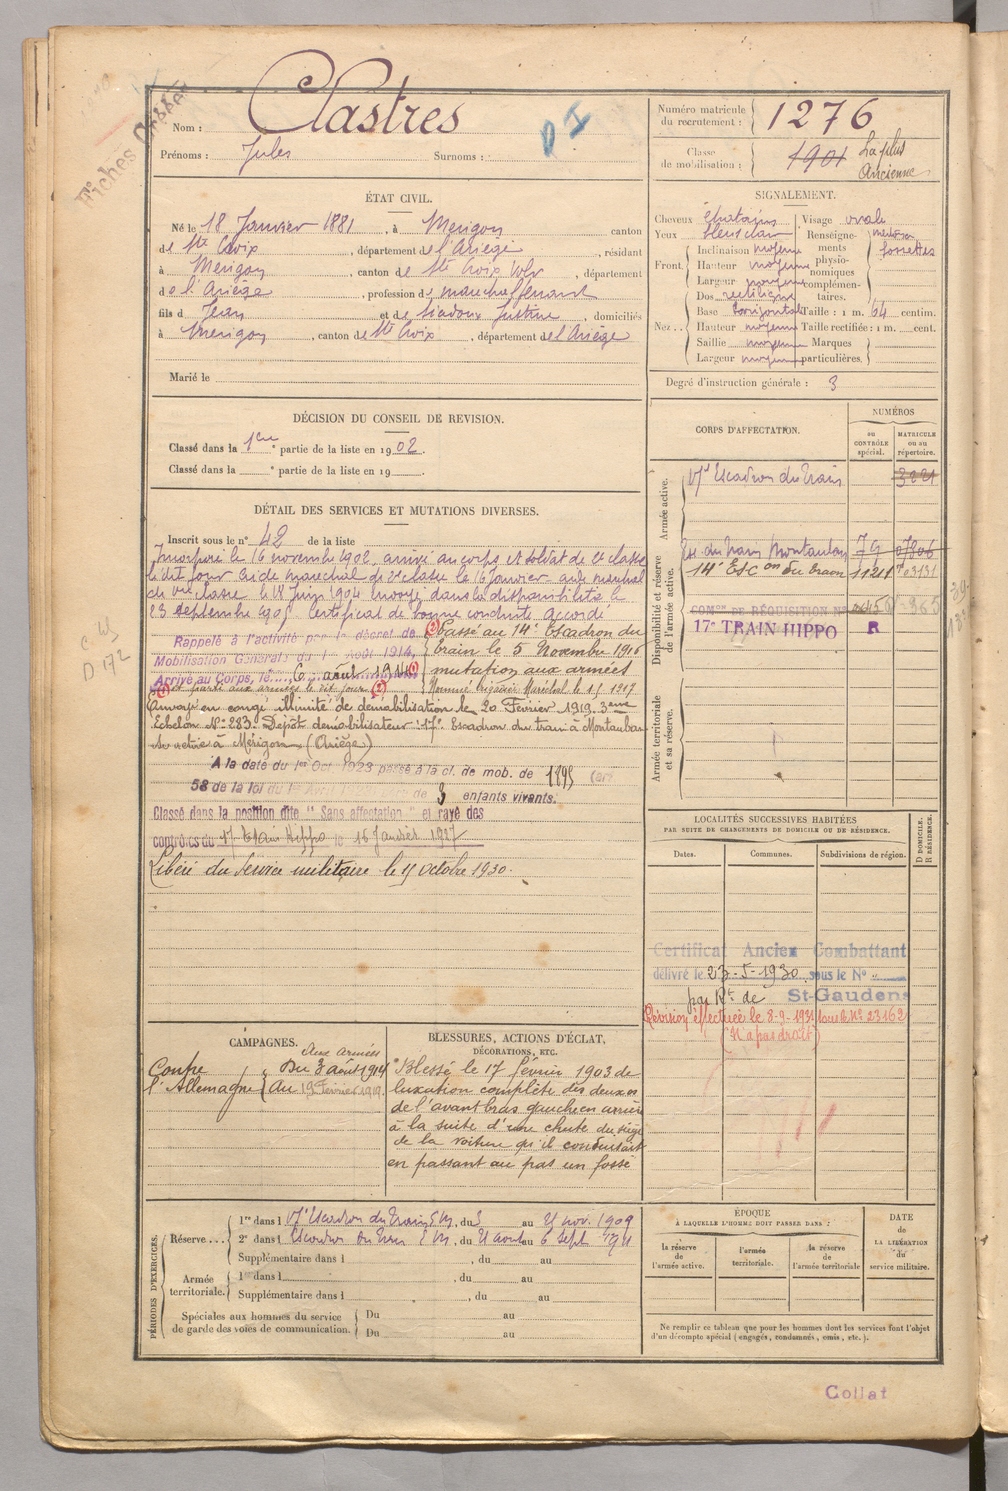 Fiches
D I
Nom : Clastres
Prénoms : Jules Surnoms :
Numéro matricule du recrutement : 1276
Classe de mobilisation : 1901 La plus Ancienne
ÉTAT CIVIL.
Né le 18 Janvier 1881, à Mérigon canton
de Ste Croix, département de l'Ariège, résidant
à Mérigon, canton de Ste Croix Volv, département
de l'Ariège, profession de maréchal ferrant
fils de Jean et de Justine, domiciliés
à Mérigon, canton de Ste Croix, département de l'Ariège
Marié le
SIGNALEMENT.
Cheveux châtains Visage ovale
Yeux bleus clair Renseignements physionomiques complémentaires. menton fossettes
Front. Inclinaison moyenne
Hauteur moyenne
Largeur moyenne
Nez. Dos rectiligne
Base horizontale Taille : 1 m. 64 centim.
Hauteur moyenne Taille rectifiée : 1 m. cent.
Saillie moyenne Marques
Largeur moyenne particulières.
Degré d'instruction générale : 3
DÉCISION DU CONSEIL DE REVISION.
Classé dans la 1ère partie de la liste en 1902.
Classé dans la e partie de la liste en 19
CORPS D'AFFECTATION.
NUMÉROS
AU CONTRÔLE spécial.
MATRICULE ou au répertoire.
Armée active.
17e Escadron du Train 3221
Disponibilité et réserve de l'armée active.
Esc. du Train Montauban 79 07806
14e Escon du train 11211 03131
COMon DE RÉQUISITION No
17e TRAIN HIPPO R
Armée territoriale et sa réserve.
DÉTAIL DES SERVICES ET MUTATIONS DIVERSES.
Inscrit sous le no 42 de la liste
Incorporé le 16 novembre 1902, arrivé au corps et soldat de 2e classe
le dit jour. Aide maréchal de 2e classe le 16 Janvier aide maréchal
de 1ère classe le 18 Juin 1904 envoyé dans la disponibilité le
23 Septembre 1905 Certificat de bonne conduite accordé
Rappelé à l'activité par le décret de
Mobilisation Générale du 1er Août 1914,
Arrivé au Corps, le 6 août 1914 (1)
(1) et parti aux armées le dit jour (2)
(2) Passé au 14e Escadron du
train le 5 Novembre 1916
mutation aux armées
Nommé brigadier Maréchal le 1917
Envoyé en congé illimité de démobilisation le 20 Février 1919. 3eme
Echelon No 283. Dépôt démobilisateur : 17e Escadron du train à Montauban
Se retire à Mérigon (Ariège)
A la date du 1er Oct. 1923 passé à la cl. de mob. de 1895 (art
58 de la loi du 1er Avril de 3 enfants vivants.
Classé dans la position dite " Sans affectation " et rayé des
contrôles du 17e Train Hippo le 16 Janvier 1927
Libéré du Service militaire le 15 octobre 1930.
LOCALITÉS SUCCESSIVES HABITÉES
PAR SUITE DE CHANGEMENTS DE DOMICILE OU DE RÉSIDENCE.
Dates. Communes. Subdivisions de région.
D DOMICILE. R RÉSIDENCE.
Certificat Ancien Combattant
délivré le 23-5-1930 sous le No
par Rt de St-Gaudens
Révision effectuée le 8-9-1931 sous le No 23162
(N'a pas droit)
CAMPAGNES.
Aux armées
Contre l'Allemagne
Du 3 août 1914
au 19 Février 1919.
BLESSURES, ACTIONS D'ÉCLAT,
DÉCORATIONS, ETC.
Blessé le 17 février 1903 de
luxation complète des deux os
de l'avant bras gauche en arrière
à la suite d'une chute du siège
de la voiture qu'il conduisait
en passant au pas un fossé
PÉRIODES D'EXERCICES.
Réserve... 1re dans l 17e Escadron du Train, du 3 au 21 nov. 1909
2e dans l Escadron du Train, du 21 août au 6 Sept 1911
Supplémentaire dans l , du au
Armée territoriale. 1re dans l , du au
Supplémentaire dans l , du au
Spéciales aux hommes du service de garde des voies de communication. Du au
Du au
ÉPOQUE
À LAQUELLE L'HOMME DOIT PASSER DANS :
la réserve de l'armée active.
l'armée territoriale.
la réserve de l'armée territoriale.
DATE
DE LA LIBÉRATION
du
service militaire.
Ne remplir ce tableau que pour les hommes dont les services font l'objet
d'un décompte spécial (engagés, condamnés, omis, etc.).
Collat